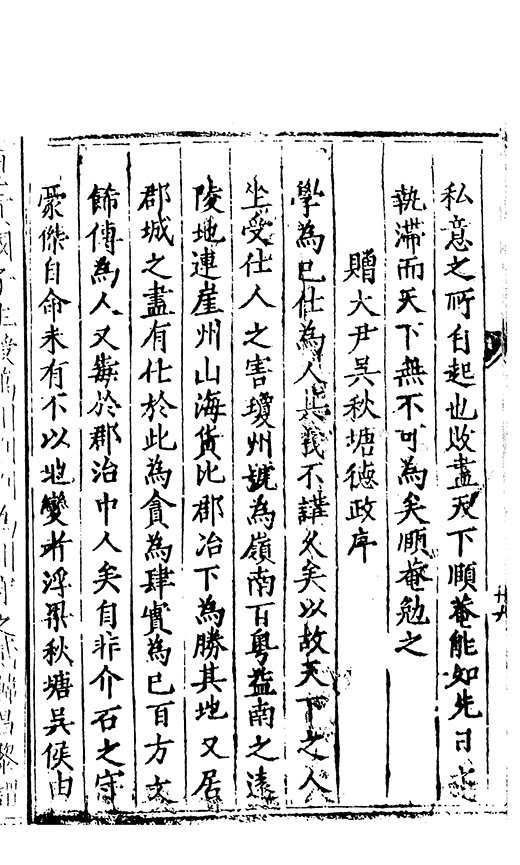 私意之所自起也敗盡天下順菴能知先日之
執滯而天下無不可為矣順菴勉之
贈大尹吳秋塘德政序
學為已仕為人其義不講久矣以故天下之人
坐受仕人之害瓊州號為嶺南百粵益南之遠
陵地連崖州山海貨比郡治下為勝其地又居
郡城之盡有仕於此為貪為肆實為已百方文
飾傳為人又每於郡治中人矣自非介石之守
豪傑自命未有不以地變者浮梁秋塘吳侯由